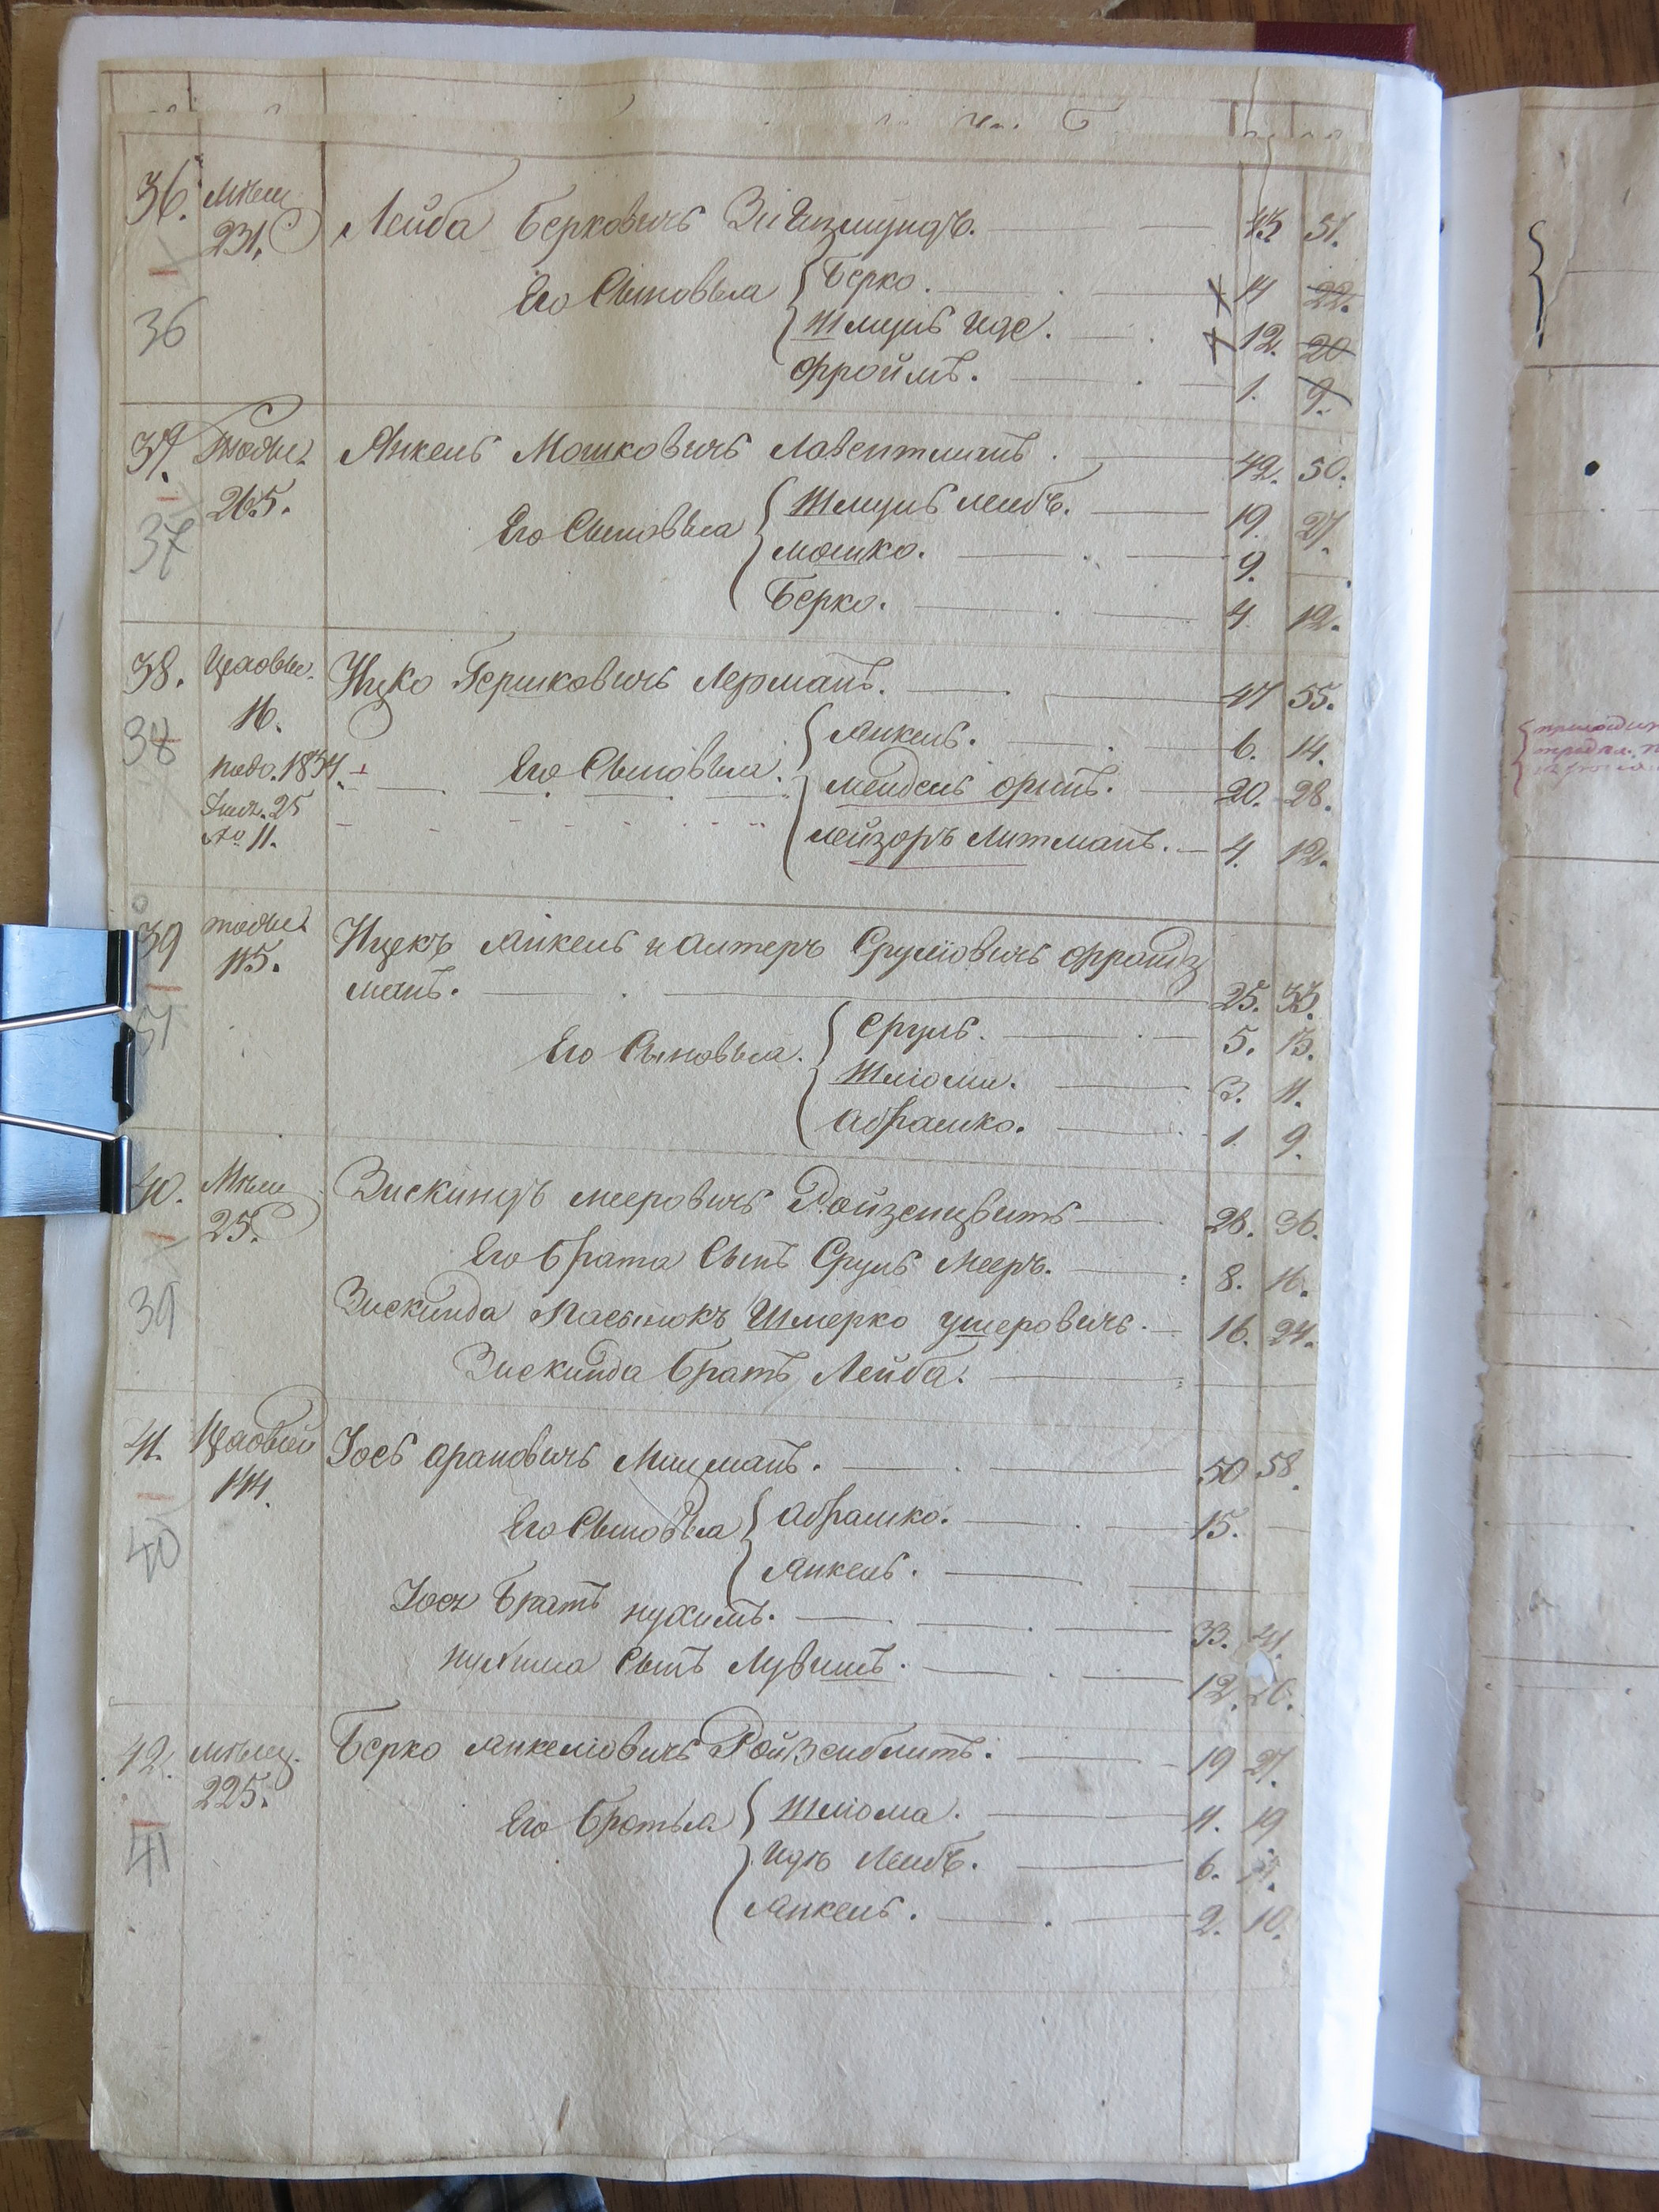 36. Мѣщ 231. Лейба Берковичъ Зигизмундъ. 43 51.
Его Сыновья Берко. 14 22.
Шмуль Иде. 12. 20
36
Фроимъ. 1. 9.
37. 265. Янкель Мошковичъ Ловентманъ. 42. 50.
Его Сыновья Шмуль Лейбъ. 19. 27.
37
Мошко. 9.
Берко. 4. 12.
38. Цеховые. 16. Ицко Гершковичъ Лерманъ. 47 55.
38
Янкель. 6. 14.
1854. Его Сыновья. Мендель 20. 28.
25
№ 11.
Лейзоръ Литманъ. 4. 12.
39 115. Ицекъ Янкель и Алтеръ Срулiовичъ
манъ. 25. 33.
Его Сыновья. Сруль. 5. 13.
Шлiома. 3. 11.
Абрашко. 1. 9.
40. Мѣщ 25. Зискиндъ Мееровичъ Ройзенцвитъ 28. 36.
Его брата Сынъ Сруль Мееръ. 8. 16.
39
Зискинда Пасынокъ Шмерко Ушеровичъ. 16. 24.
Зискинда братъ Лейба.
41. Цеховой 144. Iосъ Арановичъ Мицманъ. 50 58.
Его Сыновья Абрашко. 15.
40
Янкель.
Iося братъ Нухимъ. 33. 41.
Нухима Сынъ Лувишъ. 12.
42. Мѣщ. 225. Берко Янкелiовичъ Ройзенблитъ. 19 27.
Его братья Шлiома. 11. 19
41
Идль Лейбъ. 6.
Янкель. 2. 10.